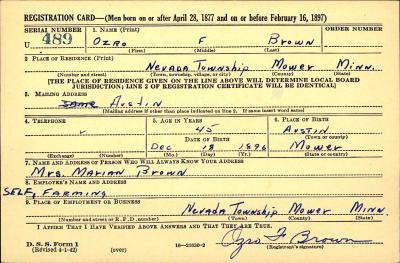 REGISTRATION CARD—(Men born on or after April 28, 1877 and on or before February 16, 1897)
SERIAL NUMBER 1. NAME (Print) ORDER NUMBER
U 489 Ozro F Brown
(First) (Middle) (Last)
2. PLACE OF RESIDENCE (Print)
Nevada Township Mower Minn.
(Number and street) (Town, township, village, or city) (County) (State)
[THE PLACE OF RESIDENCE GIVEN ON THE LINE ABOVE WILL DETERMINE LOCAL BOARD
JURISDICTION; LINE 2 OF REGISTRATION CERTIFICATE WILL BE IDENTICAL]
3. MAILING ADDRESS
Same Austin
[Mailing address if other than place indicated on line 2. If same insert word same]
4. TELEPHONE 5. AGE IN YEARS 6. PLACE OF BIRTH
45 Austin
DATE OF BIRTH (Town or county)
Dec 18 1896 Mower
(Exchange) (Number) (Mo.) (Day) (Yr.) (State or country)
7. NAME AND ADDRESS OF PERSON WHO WILL ALWAYS KNOW YOUR ADDRESS
Mrs. Marian Brown
8. EMPLOYER'S NAME AND ADDRESS
Self, Farming
9. PLACE OF EMPLOYMENT OR BUSINESS
Nevada Township Mower Minn.
(Number and street or R. F. D. number) (Town) (County) (State)
I AFFIRM THAT I HAVE VERIFIED ABOVE ANSWERS AND THAT THEY ARE TRUE.
D. S. S. Form 1
(Revised 4-1-42) (over) 16—21630-2 Ozro F Brown
(Registrant's signature)